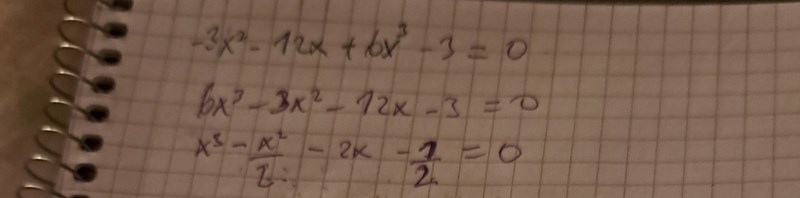 -3x² - 12x + 6x³ - 3 = 0
6x³ - 3x² - 12x - 3 = 0
x³ - x²/2 - 2x - 1/2 = 0